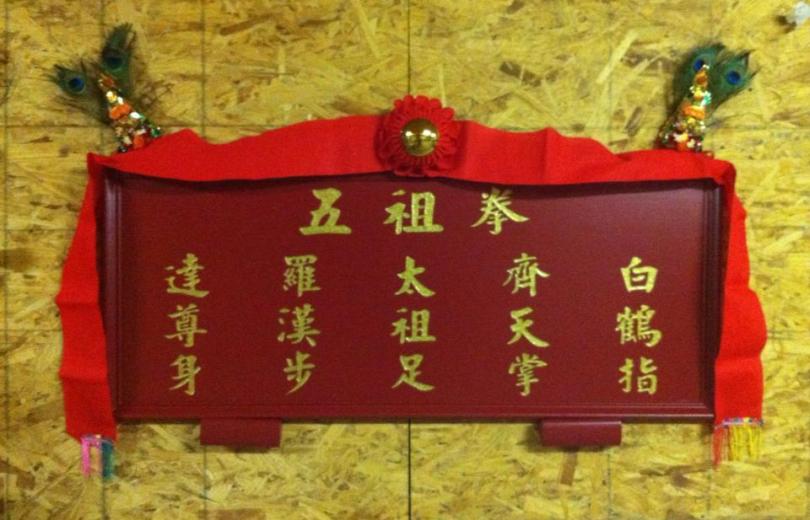 五祖拳
達尊身
羅漢步
太祖足
齊天掌
白鶴指